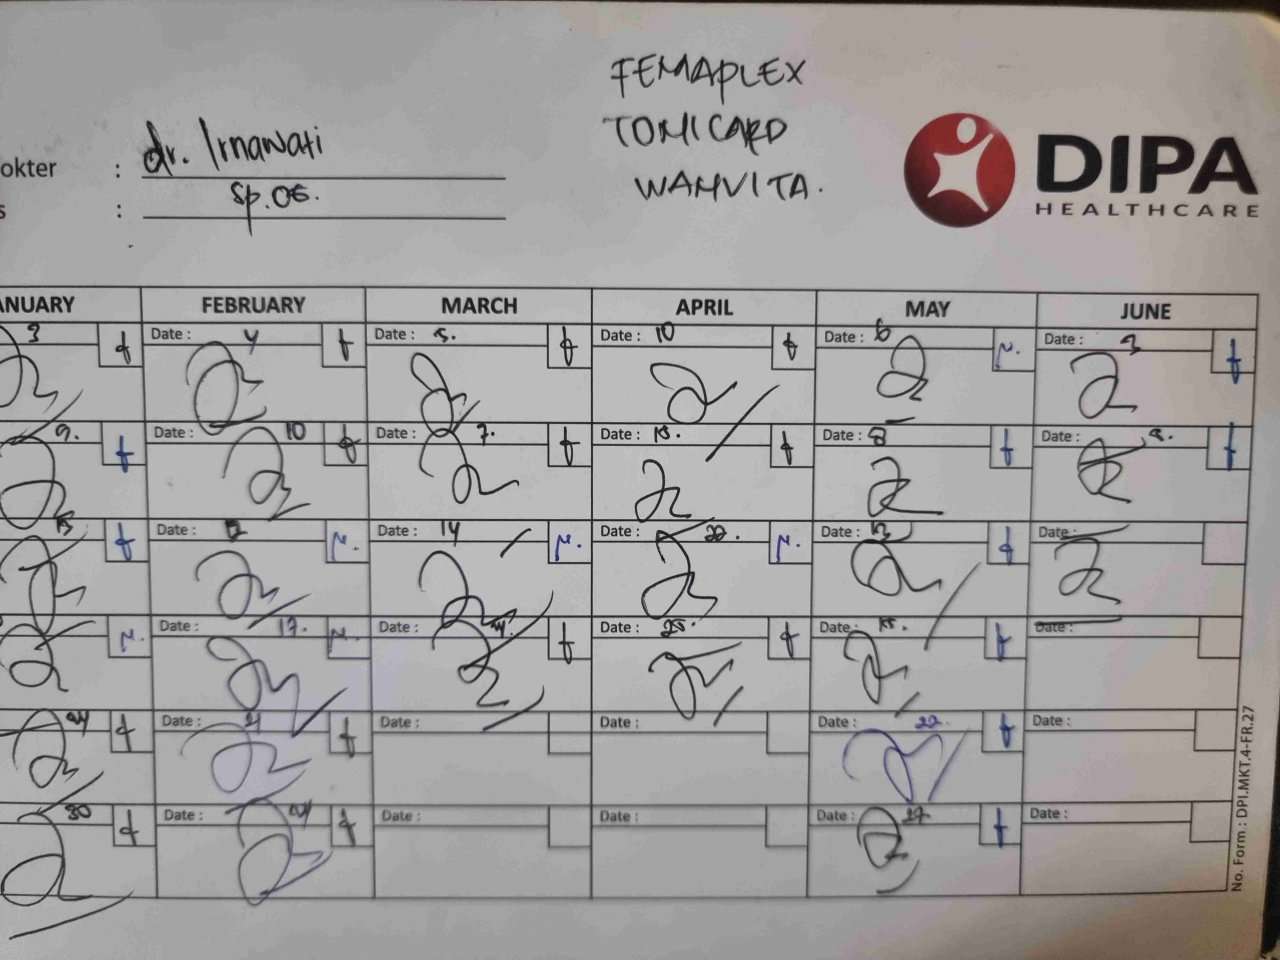 FEMAPLEX
TOMICARD
WAMVITA.
DIPA
HEALTHCARE
okter : dr. Irnawati
s : Sp.OG.
ANUARY FEBRUARY MARCH APRIL MAY JUNE
3 Date : 4 Date : 5. Date : 10 Date : 6 Date : 3
9. Date : 10 Date : 7. Date : 15. Date : 8 Date : 5.
15 Date : 12 Date : 14 Date : 22. Date : 13 Date :
Date : 17. Date : 24. Date : 25. Date : 15. Date :
24 Date : 21 Date : Date : Date : 22. Date :
30 Date : 24 Date : Date : Date : 27. Date :
No. Form.: DPI.MKT.4-FR.27